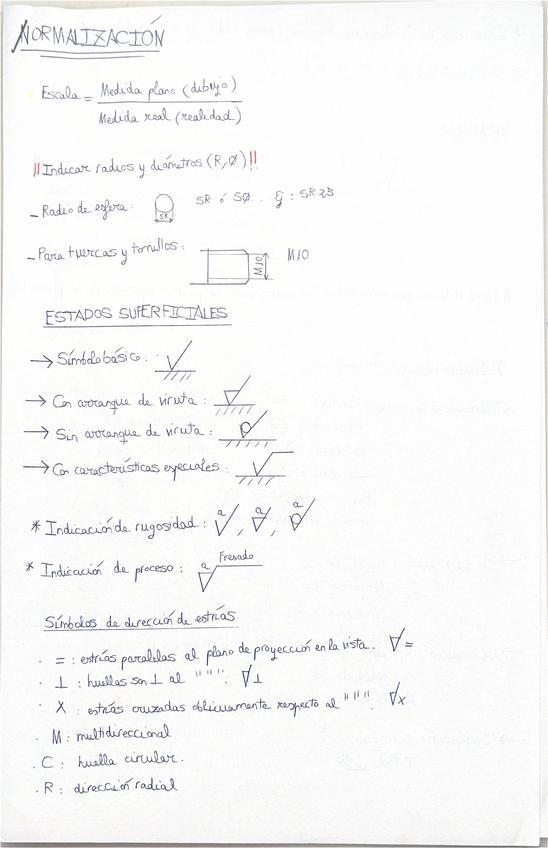 NORMALIZACIÓN
Escala = Medida plano (dibujo)
Medida real (realidad)
!! Indicar radios y diámetros (R, Ø) !!
- Radio de esfera: SR SR ó SØ.. Ej: SR 25
- Para tuercas y tornillos: M10 M10
ESTADOS SUPERFICIALES
→ Símbolo básico:
→ Con arranque de viruta:
→ Sin arranque de viruta:
→ Con características especiales:
* Indicación de rugosidad: a , a , a
* Indicación de proceso: a Fresado
Símbolos de dirección de estrías
· = : estrías paralelas al plano de proyección en la vista. =
· ⊥ : huellas son ⊥ al " " ". ⊥
· X : estrías cruzadas oblicuamente respecto al " " ". X
· M : multidireccional
· C : huella circular.
· R : dirección radial